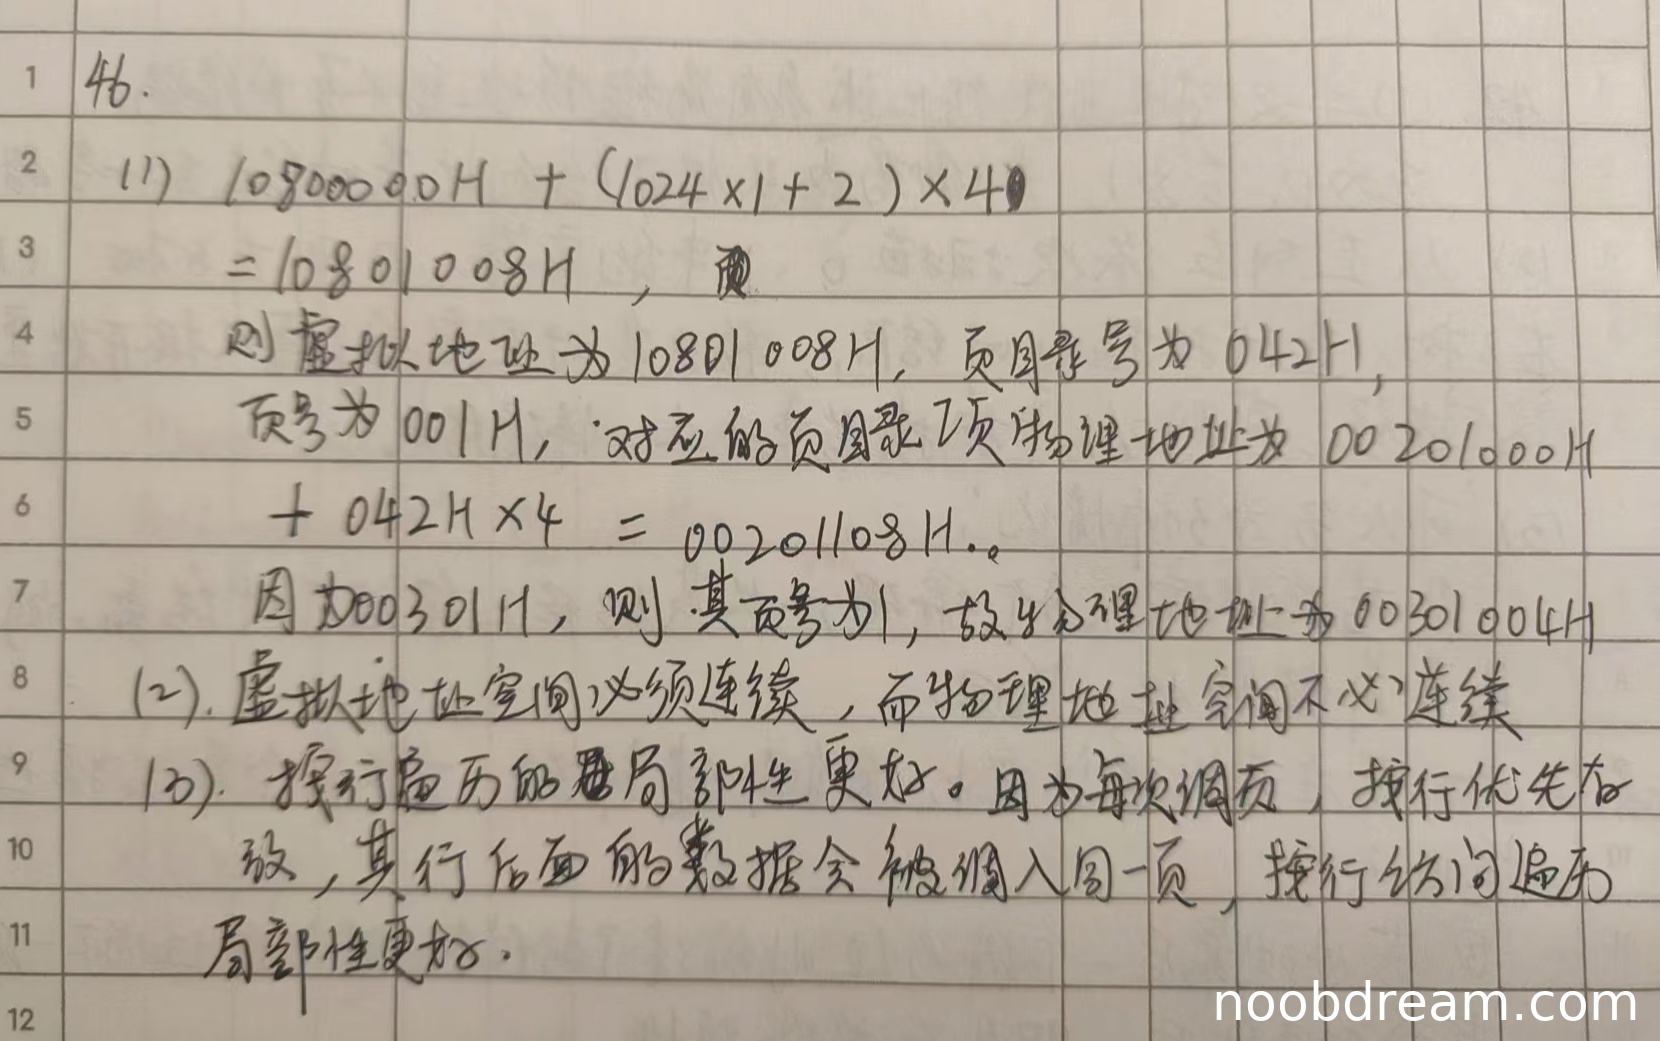 1 46.
2 (1) 10800000H + (1024×1+2)×4
3 =10801008H,
4 则虚拟地址为10801008H, 页目录号为042H,
5 页号为001H, 对应的页目录项物理地址为00201000H
6 + 042H×4 = 00201108H.。
7 因为00301H, 则其页号为1, 故物理地址为00301004H
8 (2). 虚拟地址空间必须连续, 而物理地址空间不必连续
9 (3). 按行遍历的局部性更好。因为每次调页, 按行优先存
10 放, 其行后面的数据会被调入同一页, 按行访问遍历
11 局部性更好.
12
noobdream.com